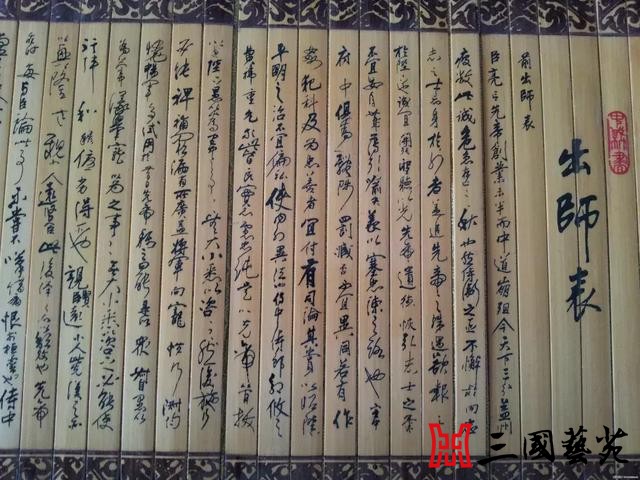 出師表
前出師表
臣亮言先帝創業未半而中道崩殂今天下三分益州
疲敝此誠危急存亡之秋也然侍衛之臣不懈於內忠
志之士忘身於外者蓋追先帝之殊遇欲報之
於陛下也誠宜開張聖聽以光先帝遺德恢弘志士之氣
不宜妄自菲薄引喻失義以塞忠諫之路也宮
府中俱為一體陟罰臧否不宜異同若有作
姦犯科及為忠善者宜付有司論其賞以昭陛
平明之治不宜偏私使內外異法也侍中侍郎郭攸之
費禕董允等此皆良實志慮忠純是以先帝簡拔
以遺陛下愚以為宮中之事事無大小悉以咨之然後施行
必能裨補闕漏有所廣益將軍向寵性行淑均
曉暢軍事試用於昔日先帝稱之曰能是以眾議
為營中之事事無大小悉以咨之必能使
行陣和穆優劣得所也親賢遠小人此先漢之所
以興隆也親小人遠賢臣此後漢之所以傾頹也先帝
在時每與臣論此事未嘗不嘆息痛恨於桓靈也侍中
三國藝苑